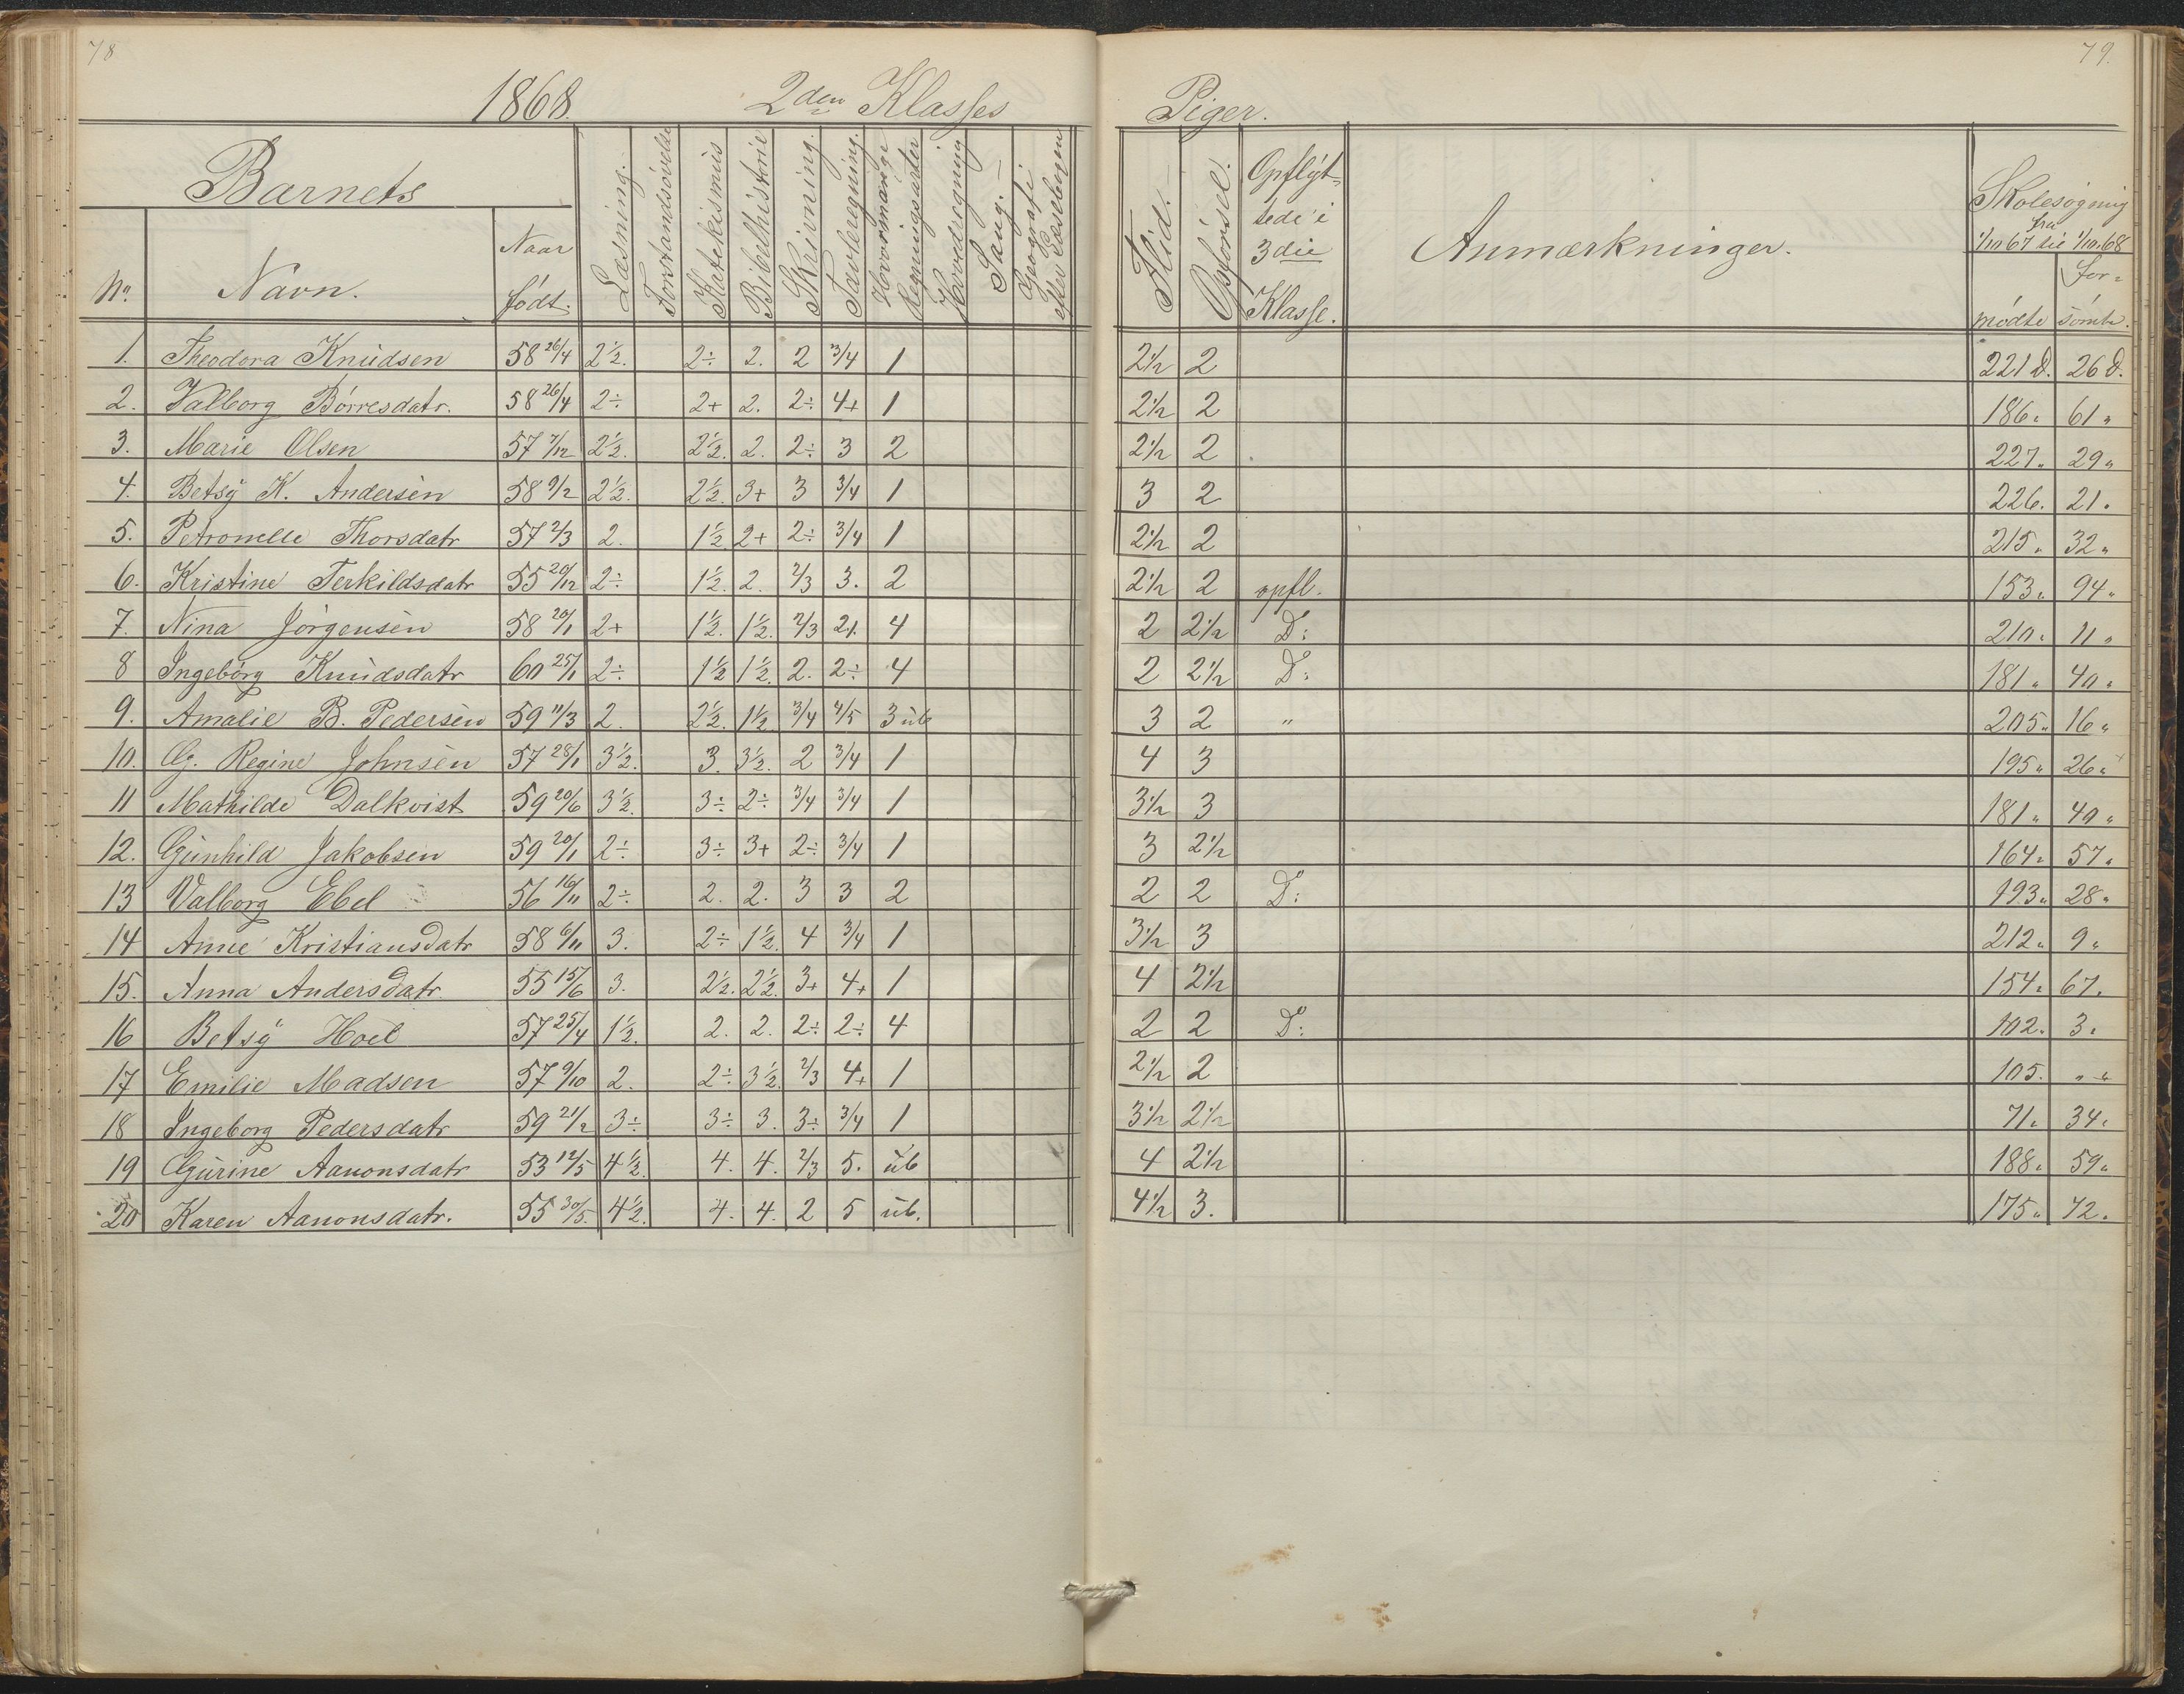 78
79.
1868. 2den Klasses Piger.
Barnets
No. Navn. Naar født. Læsning. Forstandsøvelse Katekismus Bibelhistorie Skrivning. Tavleregning. Hvormange Regningsarter Hovedregning Sang. Geografi efter Læsebogen Flid. Opførsel. Opflyttede i 3die Klasse. Anmærkninger. Skolesøgning fra 1/10 67 til 1/10 68 mødte forsømte.
1. Theodora Knudsen 58 26/4 2½. 2÷ 2. 2 3/4 1 2½ 2 221 D. 26 D.
2. Valborg Børresdatr. 58 26/4 2÷ 2+ 2. 2÷ 4+ 1 2½ 2 186 " 61 "
3. Marie Olsen 57 7/12 2½. 2½. 2. 2÷ 3 2 2½ 2 227 " 29 "
4. Betsy K. Andersen 58 9/2 2½. 2½. 3+ 3 3/4 1 3 2 226. 21.
5. Petronelle Thorsdatr 57 2/3 2. 1½ 2+ 2÷ 3/4 1 2½ 2 215 " 32 "
6. Kristine Terkildsdatr 55 20/12 2÷ 1½. 2. 2/3 3. 2 2½ 2 opfl. 153 " 94 "
7. Nina Jørgensen 58 20/1 2+ 1½. 1½. 2/3 4 2 2½ Do: 210 " 11 "
8 Ingeborg Knudsdatr 60 25/1 2÷ 1½ 1½. 2. 2÷ 4 2 2½ Do: 181 " 40 "
9. Amalie B. Pedersen 59 11/3 2. 2½. 1½ 3/4 4/5 3 ub 3 2 " 205 " 16 "
10. Regine Johnsen 57 28/1 3½. 3. 3½. 2 3/4 1 4 3 195 " 26 "
11 Mathilde Dalkvist 59 20/6 3½. 3÷ 2÷ 3/4 3/4 1 3½ 3 181 " 40 "
12. Gunhild Jakobsen 59 20/1 2÷ 3÷ 3+ 2÷ 3/4 1 3 2½ 164 " 57 "
13 Valborg Ebel 56 16/11 2÷ 2. 2. 3 3 2 2 2 Do: 193 " 28 "
14 Anne Kristiansdatr 58 6/11 3. 2÷ 1½. 4 3/4 1 3½ 3 212 " 9 "
15. Anna Andersdatr 55 15/6 3. 2½. 2½. 3+ 4+ 1 4 2½ 154 " 67.
16 Betsy Hoel 57 25/4 1½. 2. 2. 2÷ 2÷ 4 2 2 Do: 102. 3 "
17 Emilie Madsen 57 9/10 2. 2÷ 3½. 2/3 4+ 1 2½ 2 105. " "
18 Ingeborg Pedersdatr 59 21/2 3÷ 3÷ 3. 3÷ 3/4 1 3½ 2½ 71 " 34 "
19 Gurine Aanonsdatr 53 12/5 4½. 4. 4. 2/3 5. ub 4 2½ 188 " 59 "
20 Karen Aanonsdatr. 55 30/5. 4½. 4. 4. 2 5 ub. 4½ 3. 175 " 72.